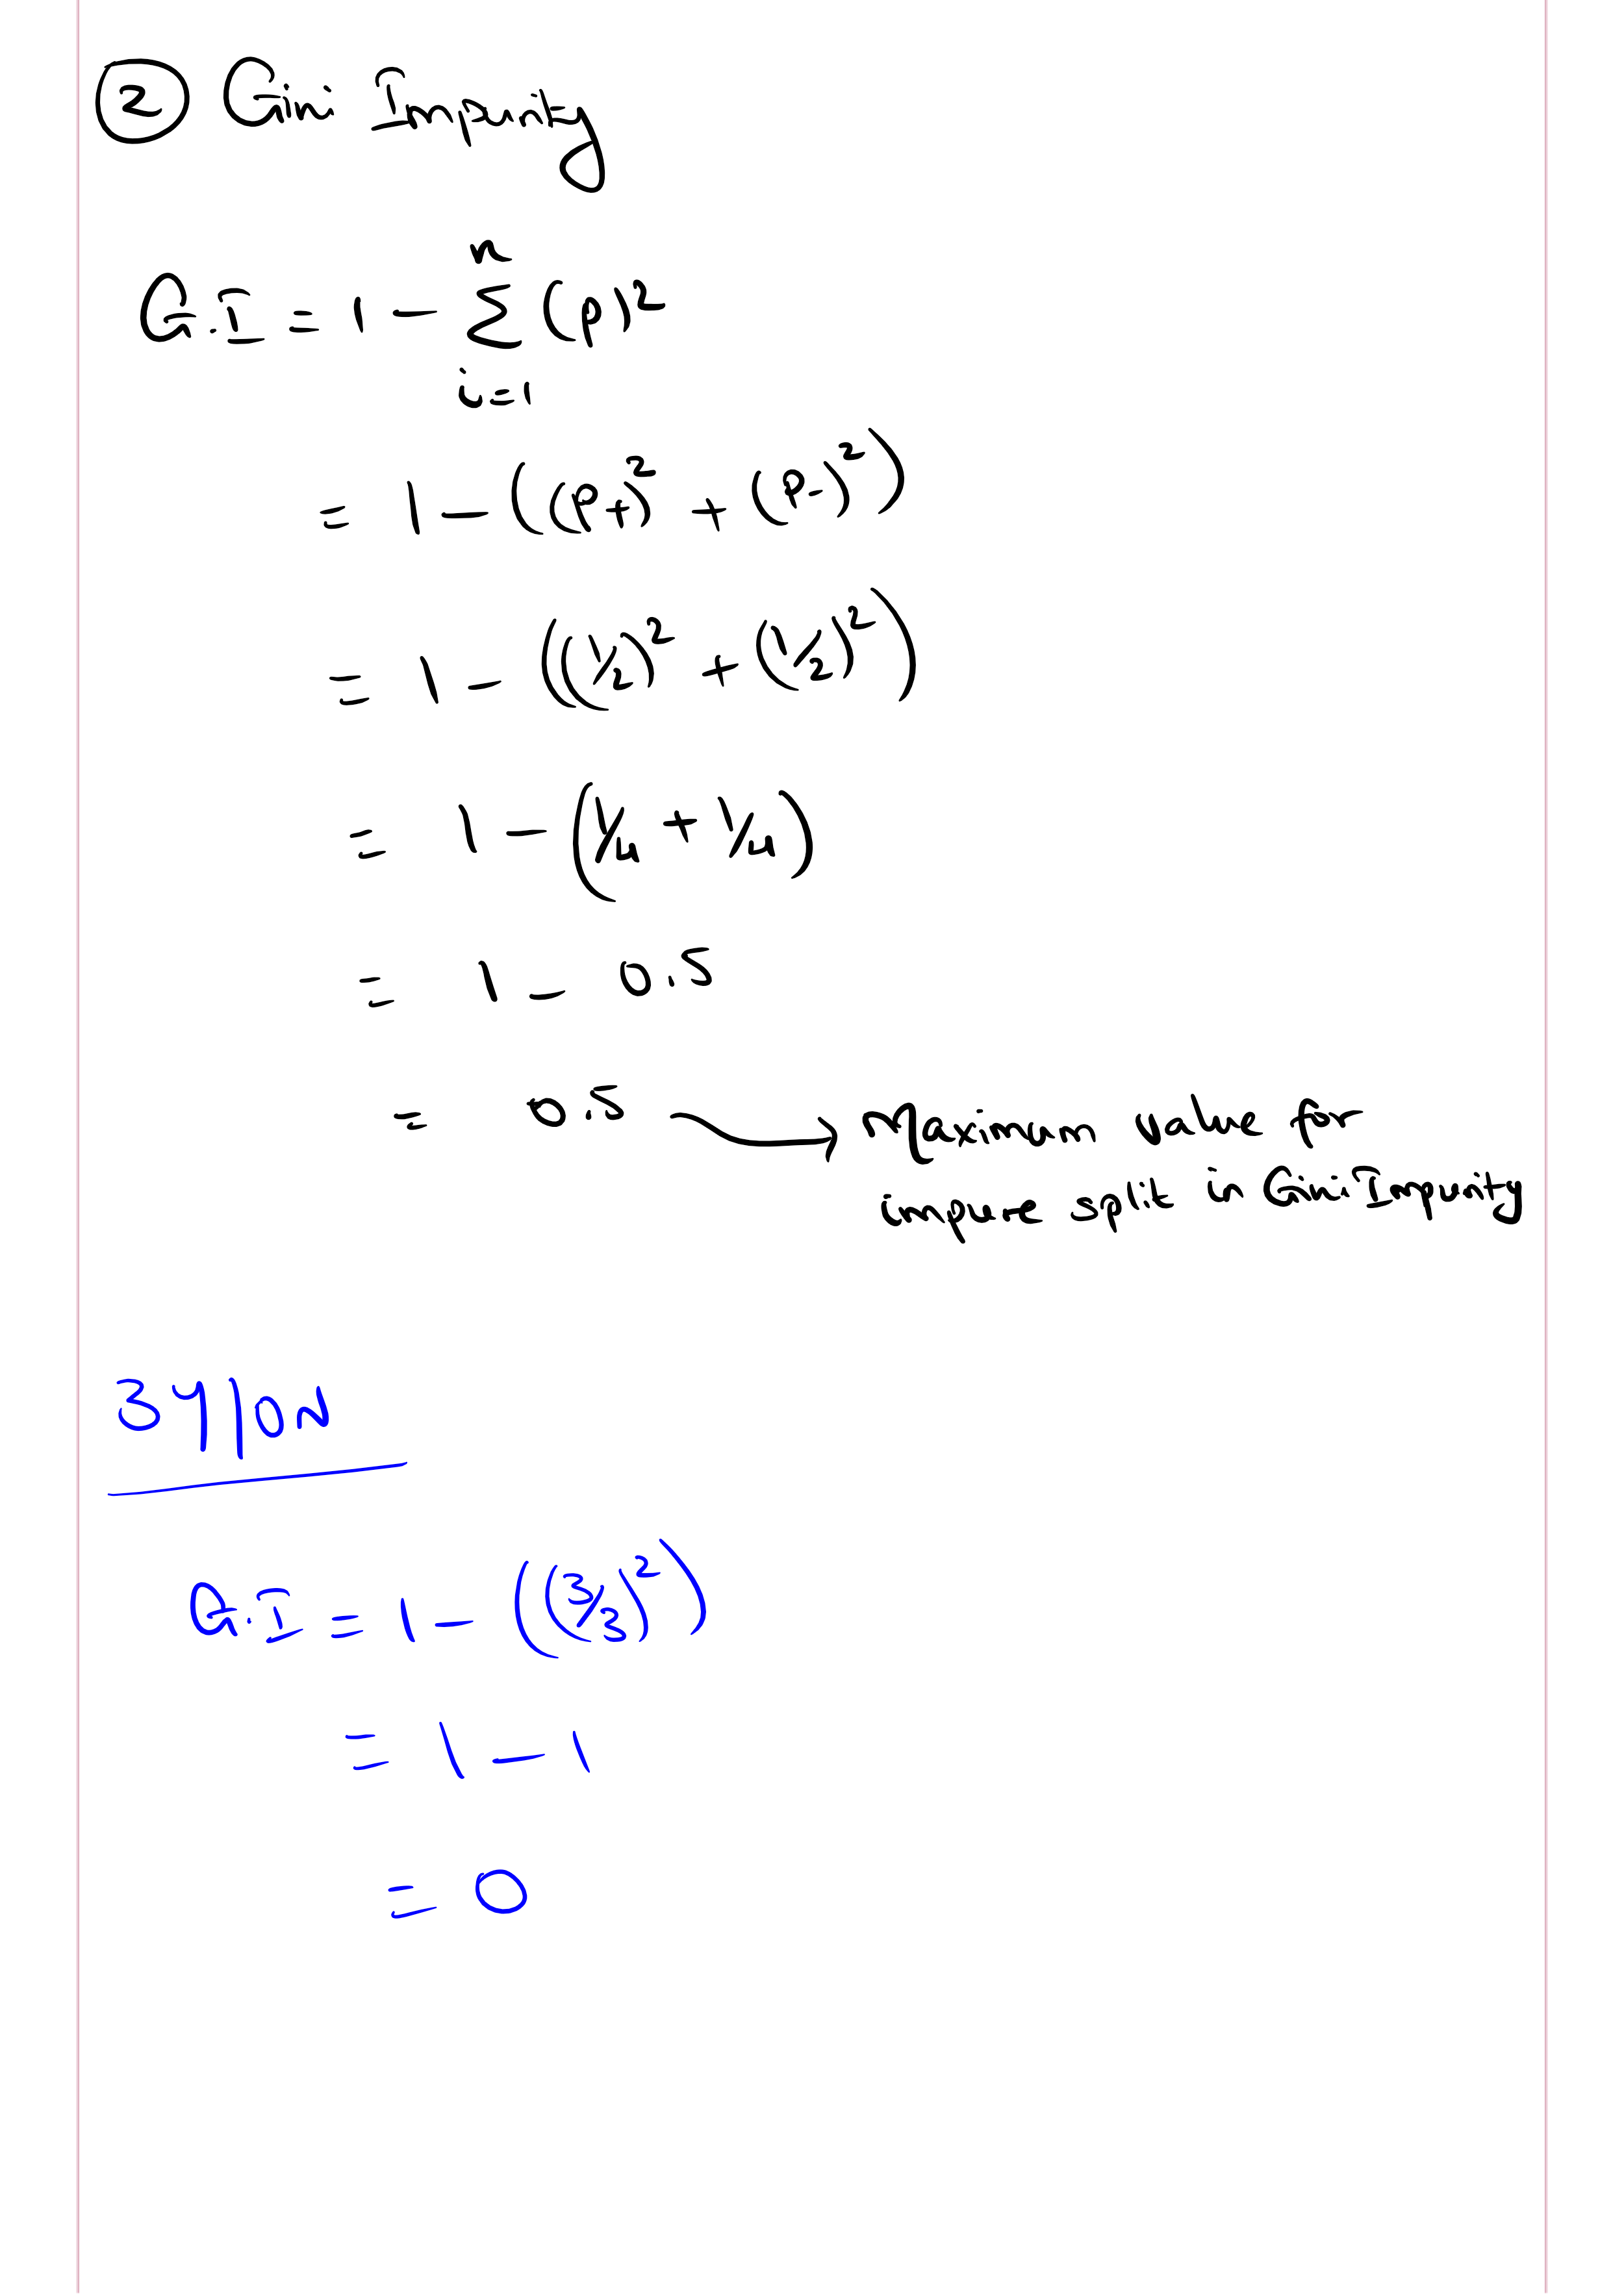 ② Gini Impurity
G.I = 1 - n Σ i=1 (p)²
= 1 - ((P+)² + (P-)²)
= 1 - ((1/2)² + (1/2)²)
= 1 - (1/4 + 1/4)
= 1 - 0.5
= 0.5 → Maximum value for
impure split in Gini Impurity
3Y||0N
G.I = 1 - ((3/3)²)
= 1 - 1
= 0